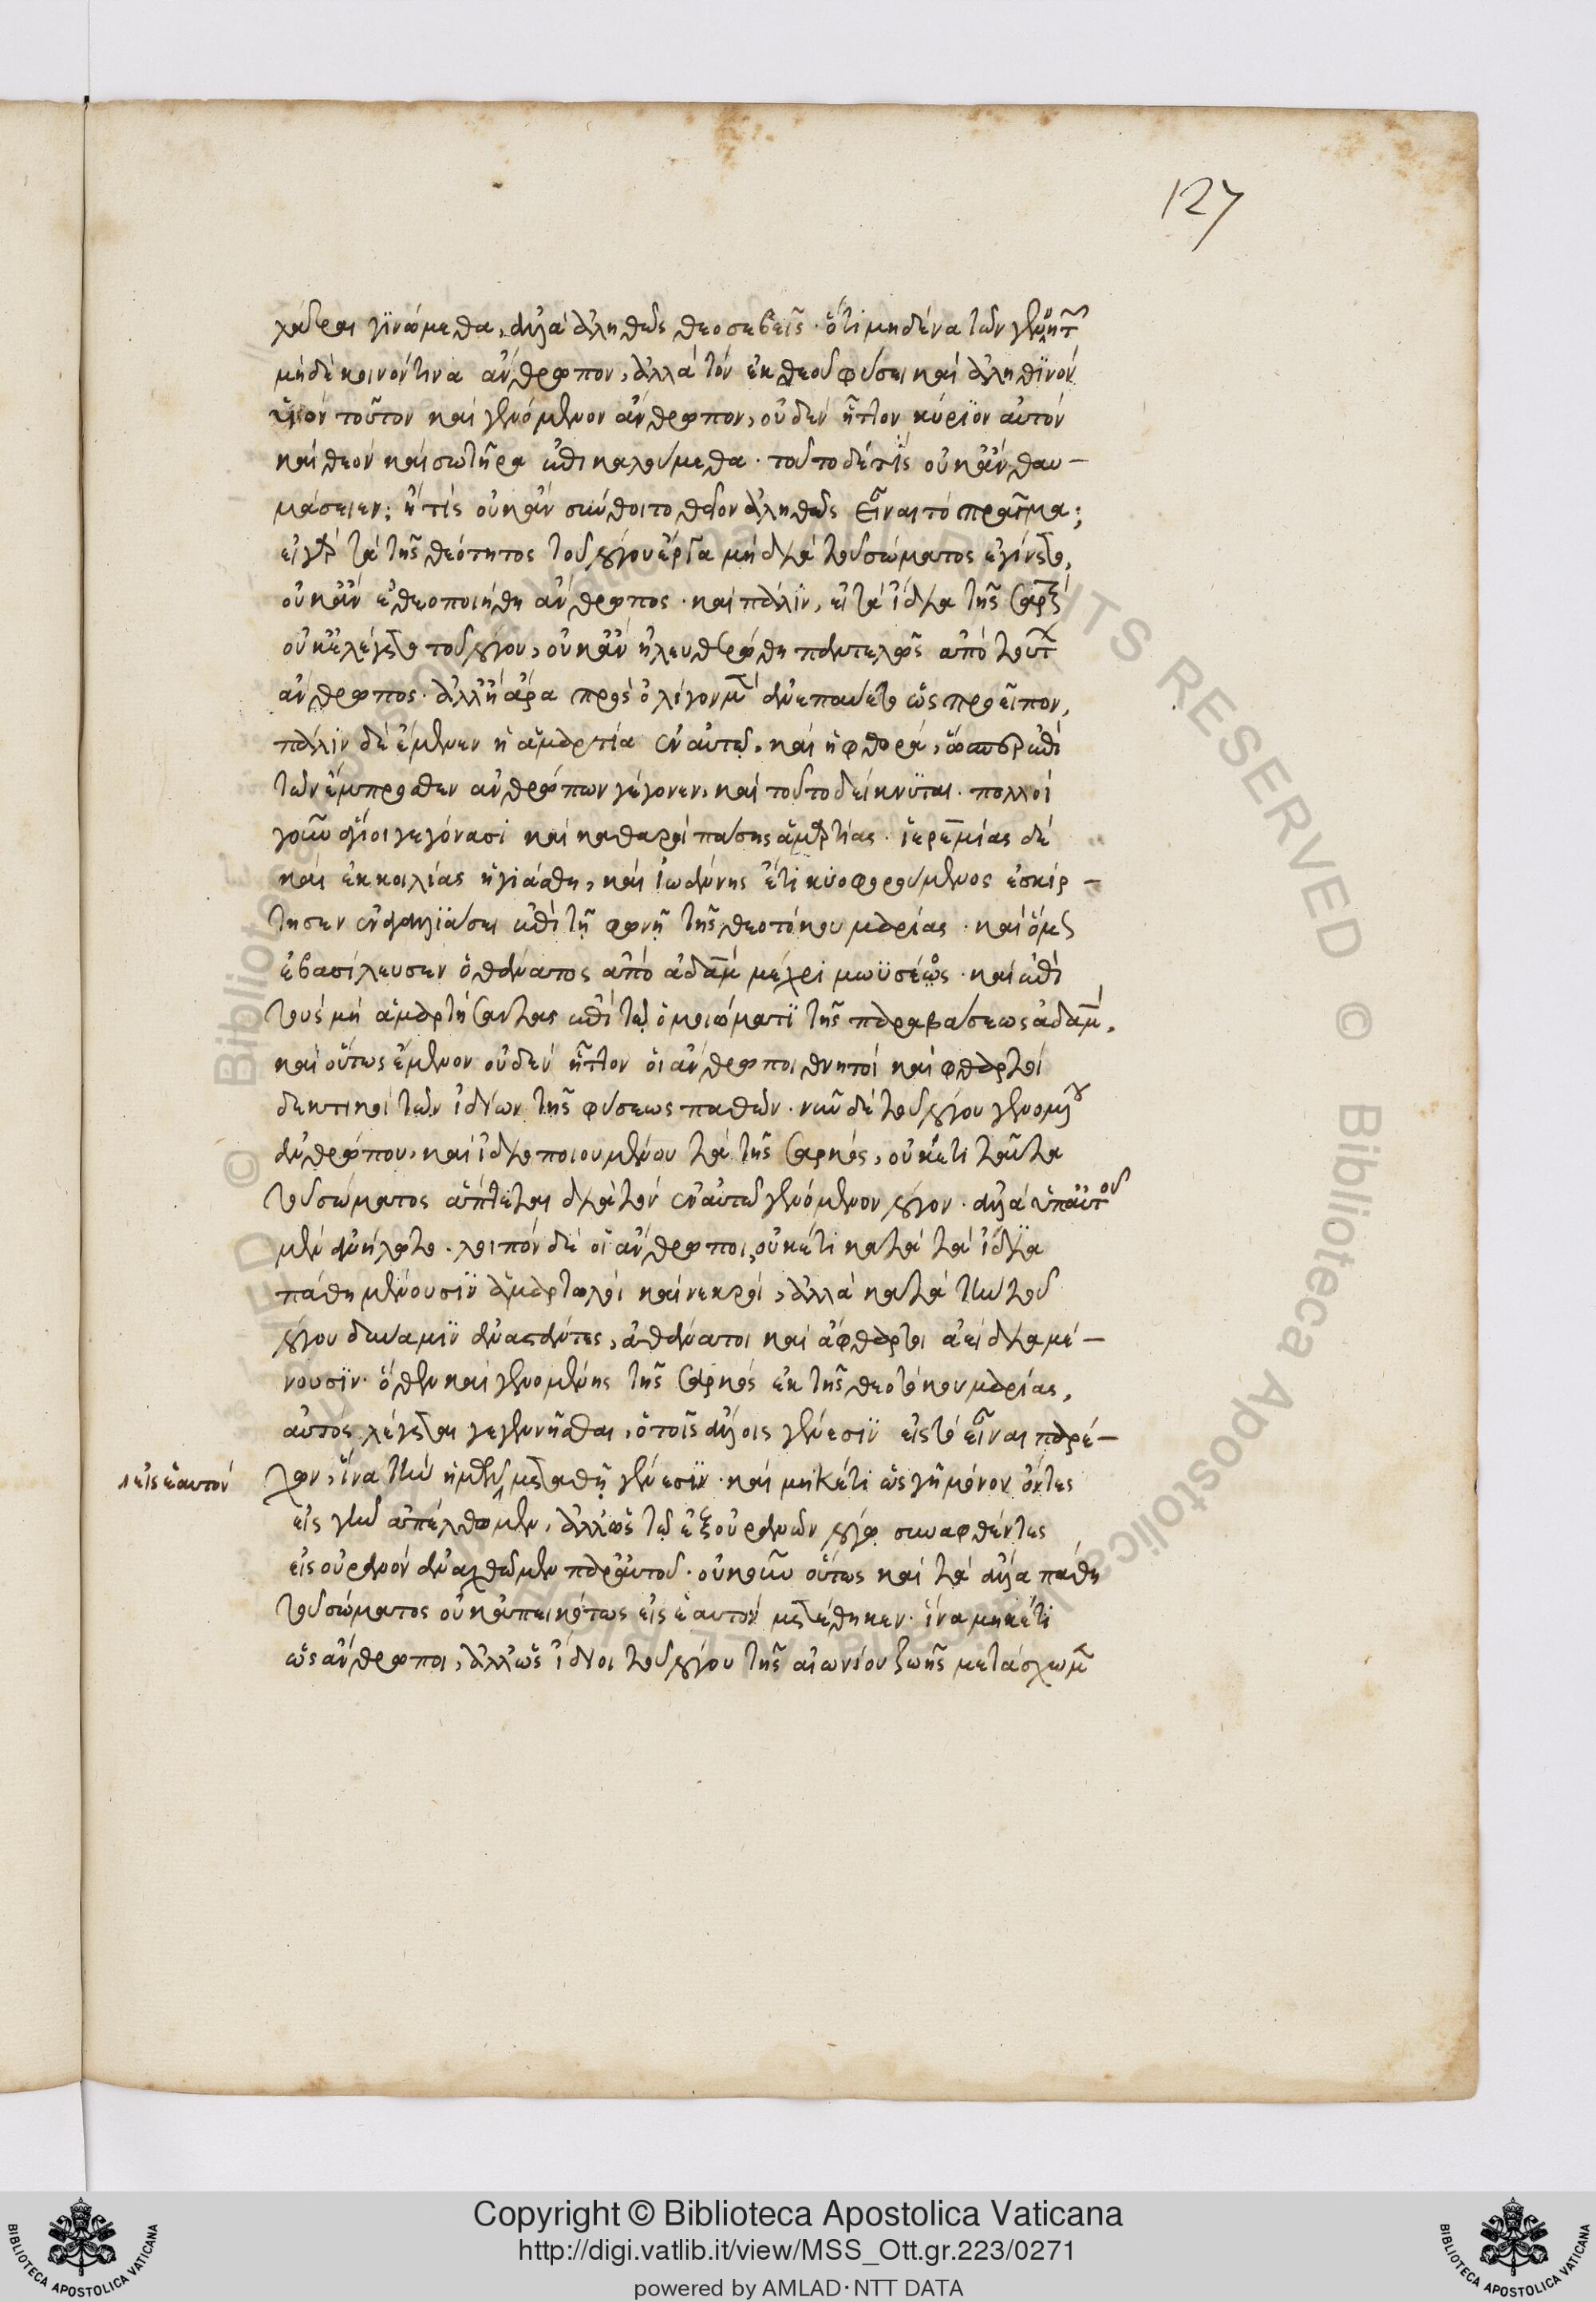 127
λάτραι γινώμεθα, ἀλλὰ ἀληθῶς θεοσεβεῖς· ὅτι μηδένα τῶν γενητῶν
μὴδὲ κοινόν τινα ἄνθρωπον, ἀλλὰ τὸν ἐκ θεοῦ φύσει καὶ ἀληθινὸν
υἱὸν τοῦτον καὶ γενόμενον ἄνθρωπον, οὐδὲν ἧττον κύριον αὐτὸν
καὶ θεὸν καὶ σωτῆρα ἐπικαλούμεθα· τοῦτο δὲ τίς οὐκ ἂν θαυ-
μάσειεν; ἢ τίς οὐκ ἂν σύνθοιτο θεῖον ἀληθῶς εἶναι τὸ πρᾶγμα;
εἰ γὰρ τὰ τῆς θεότητος τοῦ λόγου ἔργα μὴ διὰ τοῦ σώματος ἐγίνετο,
οὐκ ἂν ἐθεοποιήθη ἄνθρωπος· καὶ πάλιν, εἰ τὰ ἴδια τῆς σαρκὸς
οὐκ ἐλέγετο τοῦ λόγου, οὐκ ἂν ἠλευθερώθη παντελῶς ἀπὸ τούτων
ἄνθρωπος· ἀλλ' ἢ ἄρα πρὸς ὀλίγον μὲν ἀνεπαύετο ὡς προεῖπον,
πάλιν δὲ ἔμενεν ἡ ἁμαρτία ἐν αὐτῷ, καὶ ἡ φθορά, ὥσπερ ἐπὶ
τῶν ἔμπροσθεν ἀνθρώπων γέγονεν, καὶ τοῦτο δείκνυται· πολλοὶ
γοῦν ἅγιοι γεγόνασι καὶ καθαροὶ πάσης ἁμαρτίας· ἱερεμίας δὲ
καὶ ἐκ κοιλίας ἡγιάσθη, καὶ ἰωάννης ἔτι κυοφορούμενος ἐσκίρ-
τησεν ἐν ἀγαλλιάσει ἐπὶ τῇ φωνῇ τῆς θεοτόκου μαρίας· καὶ ὅμως
ἐβασίλευσεν ὁ θάνατος ἀπὸ ἀδὰμ μέχρι μωϋσέως· καὶ ἐπὶ
τοὺς μὴ ἁμαρτήσαντας ἐπὶ τῷ ὁμοιώματι τῆς παραβάσεως ἀδάμ,
καὶ οὕτως ἔμενον οὐδὲν ἧττον οἱ ἄνθρωποι θνητοὶ καὶ φθαρτοὶ
δεκτικοὶ τῶν ἰδίων τῆς φύσεως παθῶν· νῦν δὲ τοῦ λόγου γενομένου
ἀνθρώπου, καὶ ἰδιοποιουμένου τὰ τῆς σαρκός, οὐκέτι ταῦτα
τοῦ σώματος ἅπτεται διὰ τὸν ἐν αὐτῷ γενόμενον λόγον· ἀλλὰ ὑπ' αὐτοῦ
μὲν ἀνήλωτο· λοιπὸν δὲ οἱ ἄνθρωποι, οὐκέτι κατὰ τὰ ἴδια
πάθη μένουσιν ἁμαρτωλοὶ καὶ νεκροί, ἀλλὰ κατὰ τὴν τοῦ
λόγου δύναμιν ἀναστάντες, ἀθάνατοι καὶ ἄφθαρτοι ἀεὶ διαμέ-
νουσιν· ὅθεν καὶ γενομένης τῆς σαρκὸς ἐκ τῆς θεοτόκου μαρίας,
αὐτὸς λέγεται γεγεννῆσθαι, ὁ τοῖς ἄλλοις γένεσιν εἰς τὸ εἶναι παρέ-
χων, ἵνα τὴν ἡμῶν μεταθῇ γένεσιν· καὶ μηκέτι ὡς γῆ μόνον ὄντες
⸓ εἰς ἑαυτὸν
εἰς γῆν ἀπέλθωμεν, ἀλλ' ὡς τῷ ἐξ οὐρανῶν λόγῳ συναφθέντες
εἰς οὐρανὸν ἀναχθῶμεν παρ' αὐτοῦ· οὐκοῦν οὕτως καὶ τὰ ἄλλα πάθη
τοῦ σώματος οὐκ ἀπεικότως εἰς ἑαυτὸν μετέθηκεν· ἵνα μηκέτι
ὡς ἄνθρωποι, ἀλλ' ὡς ἴδιοι τοῦ λόγου τῆς αἰωνίου ζωῆς μετάσχωμεν
Copyright © Biblioteca Apostolica Vaticana
http://digi.vatlib.it/view/MSS_Ott.gr.223/0271
powered by AMLAD·NTT DATA